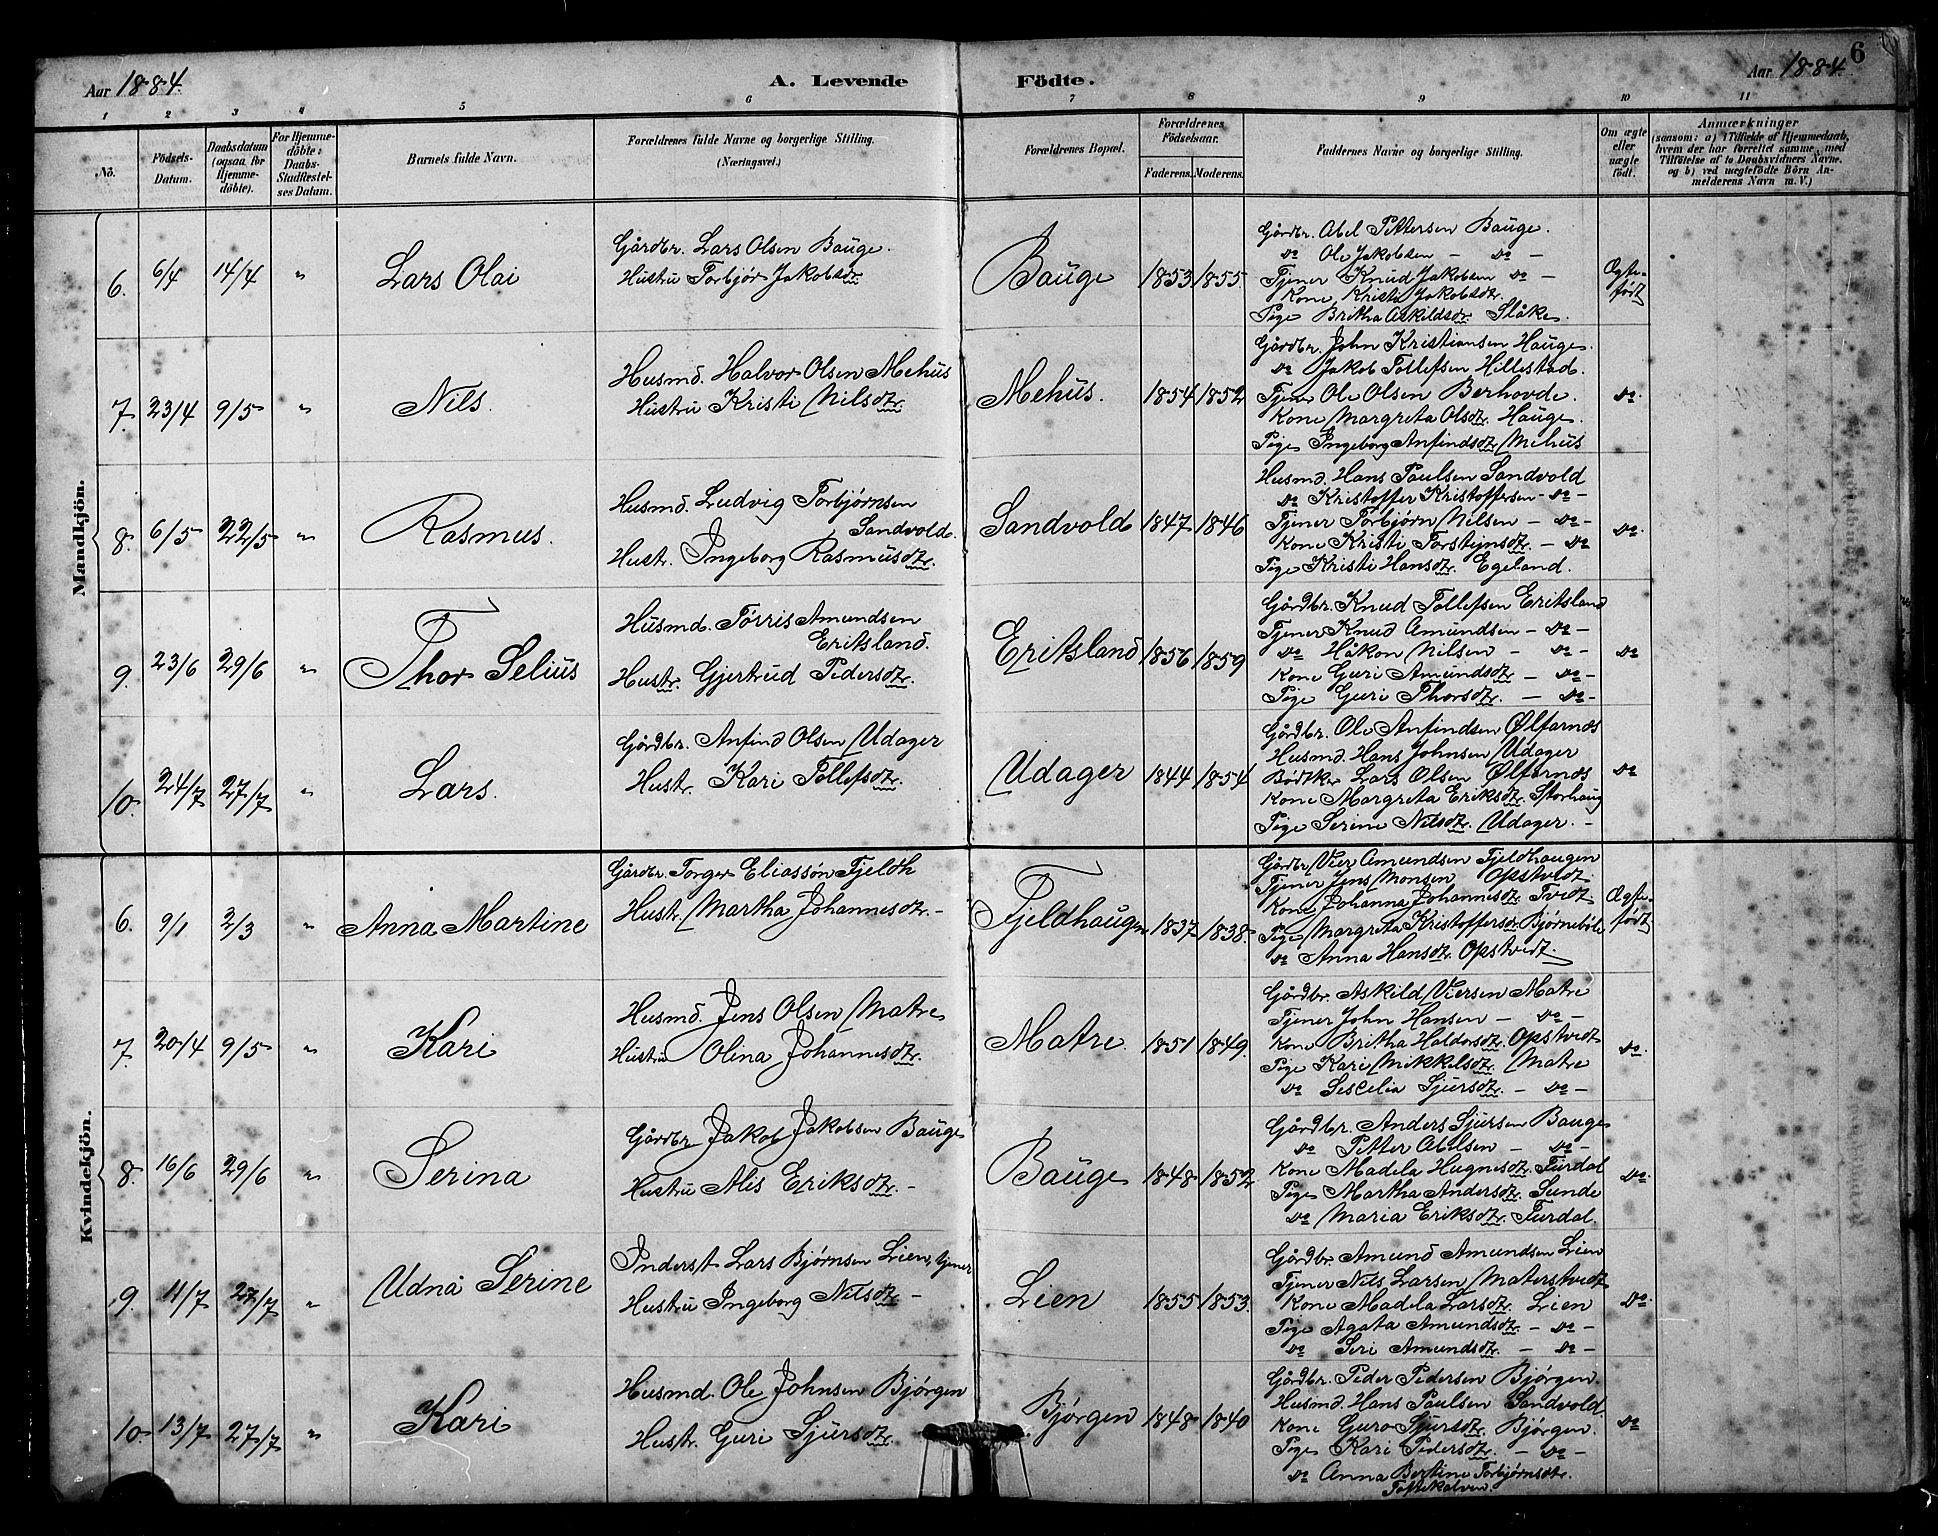 6
Aar 1884.
A. Levende Födte.
Aar 1884.
1 2 3 4 5 6 7 8 9 10 11
No.
Födsels-Datum.
Daabsdatum (ogsaa for Hjemme-döbte).
For Hjemme-döbte: Daabs-Stadfestel-ses Datum.
Barnets fulde Navn.
Forældrenes fulde Navne og borgerlige Stilling. (Næringsvei.)
Forældrenes Bopæl.
Forældrenes Födselsaar.
Faderens. Moderens.
Faddernes Navne og borgerlige Stilling.
Om ægte eller uægte födt.
Anmærkninger
(saasom: a) i Tilfælde af Hjemmedaab, hvem der har forrettet samme, med Tilföielse af to Daabsvidners Navne, og b) ved uægtefödte Börn Anmelderens Navn m. V.)
Mandkjön.
6. 6/4 14/4 " Lars Olai
Gårdbr. Lars Olsen Bauge.
Hustru Torbjør Jakobsdr.
Bauge 1853 1855
Gårdbr. Abel Pettersen Bauge.
do Ole Jakobsen - do -
Tjener Knud Jakobsen do -
Kone Kristi Jakobsdr.
Pige Britha Askildsdr. Slåke.
Ægte-født
7. 23/4 9/5 " Nils.
Husmd. Halvor Olsen Mehus
Hustru Kristi Nilsdtr.
Mehus. 1854 1852
Gårdbr. John Kristiansen Hauge.
do Jakob Tollefsen Hillestad.
Tjener Ole Olsen Berhovde.
Kone Margreta Olsdtr. Hauge.
Pige Ingeborg Anfindsdtr. Mehus
do.
8. 6/5 22/5 " Rasmus.
Husmd. Ludvig Torbjørnsen
Sandvold.
Hustr. Ingeborg Rasmusdtr.
Sandvold 1847 1846
Husmd. Hans Paulsen Sandvold
do Kristoffer Kristoffersen - do -
Tjener Torbjørn Nilsen - do -
Kone Kristi Torstejnsdtr. - do
Pige Kristi Hansdtr. Egeland.
do.
9. 23/6 29/6 " Thor Selius
Husmd. Tørris Amundsen
Eritsland.
Hustr. Gjertrud Pedersdtr.
Eritsland 1856 1859
Gårdbr. Knud Tollefsen Eritsland
Tjener Knud Amundsen - do -
do Håkon Nilsen - do -
Kone Guri Amundsdtr - do -
Pige Guri Thorsdtr. - do -
do
10. 24/7 27/7 " Lars.
Gårdbr. Anfind Olsen Udager
Hustr. Kari Tollefsdtr.
Udager 1844 1854
Gårdbr. Ole Anfindsen Ølfarnes
Husmd. Hans Johnsen Udager
Bødtker Lars Olsen Ølfarnes
Kone Margreta Eriksdtr. Storhaug
Pige Serine Nilsdtr. Udager. -
do
Kvindekjön.
6. 9/1 2/3 " Anna Martine
Gårdbr. Torger Eliassøn Fjeldh
Hustr. Martha Johannesdtr. -
Fjeldhaugn 1837 1838.
Gårdbr. Vier Amundsen Fjeldhaugen
Tjener Jens Monsen Opstvedt
Kone Johanna Johannesdtr Tvedt
Pige Margreta Kristoffersdr. Bjørnebôle
do Anna Hansdtr. Opstvedt.
Ægte-født
7. 20/4 9/5 " Kari
Husmd. Jens Olsen Matre
Hustru Olina Johannesdtr.
Matre. 1851 1849.
Gårdbr. Askild Viersen Matre
Tjener John Hansen - do -
Kone Britha Haldorsdtr. Opstvedt
Pige Kari Mikkelsdtr. Matre
do Sescelia Sjursdtr. - do -
do.
8. 16/6 29/6 " Serina
Gårdbr. Jakob Jakobsen Bauge
Hustru Alis Eriksdtr. -
Bauge 1848 1852
Gårdbr. Anders Sjursen Bauge
do Petter Abelsen - do -
Kone Madela Hugnesdtr. Furdal
Pige Martha Andersdtr. Sunde
do Maria Eriksdtr. Furdal.
do.
9. 11/7 27/7 " Udnå Serine
Inderst Lars Bjørnsen Lien, tjener
Hustru Ingeborg Nilsdtr -
Lien 1855 1853.
Gårdbr. Amund Amundsen Lien
Tjener Nils Larsen Materstvedt
Kone Madela Larsdtr. Lien
Pige Agata Amundsdtr. - do -
do Seri Amundsdtr. - do -
do.
10. 13/7 27/7 " Kari
Husmd. Ole Johnsen Bjørgen
Hustr. Guri Sjursdtr.
Bjørgen 1848 1840
Gårdbr. Peder Pedersen Bjørgen.
Husmd. Hans Paulsen Sandvold.
Kone Guro Sjursdtr. Bjørgen.
Pige Kari Pedersdtr. - do -
do Anna Bertine Torbjørnsdtr.
do